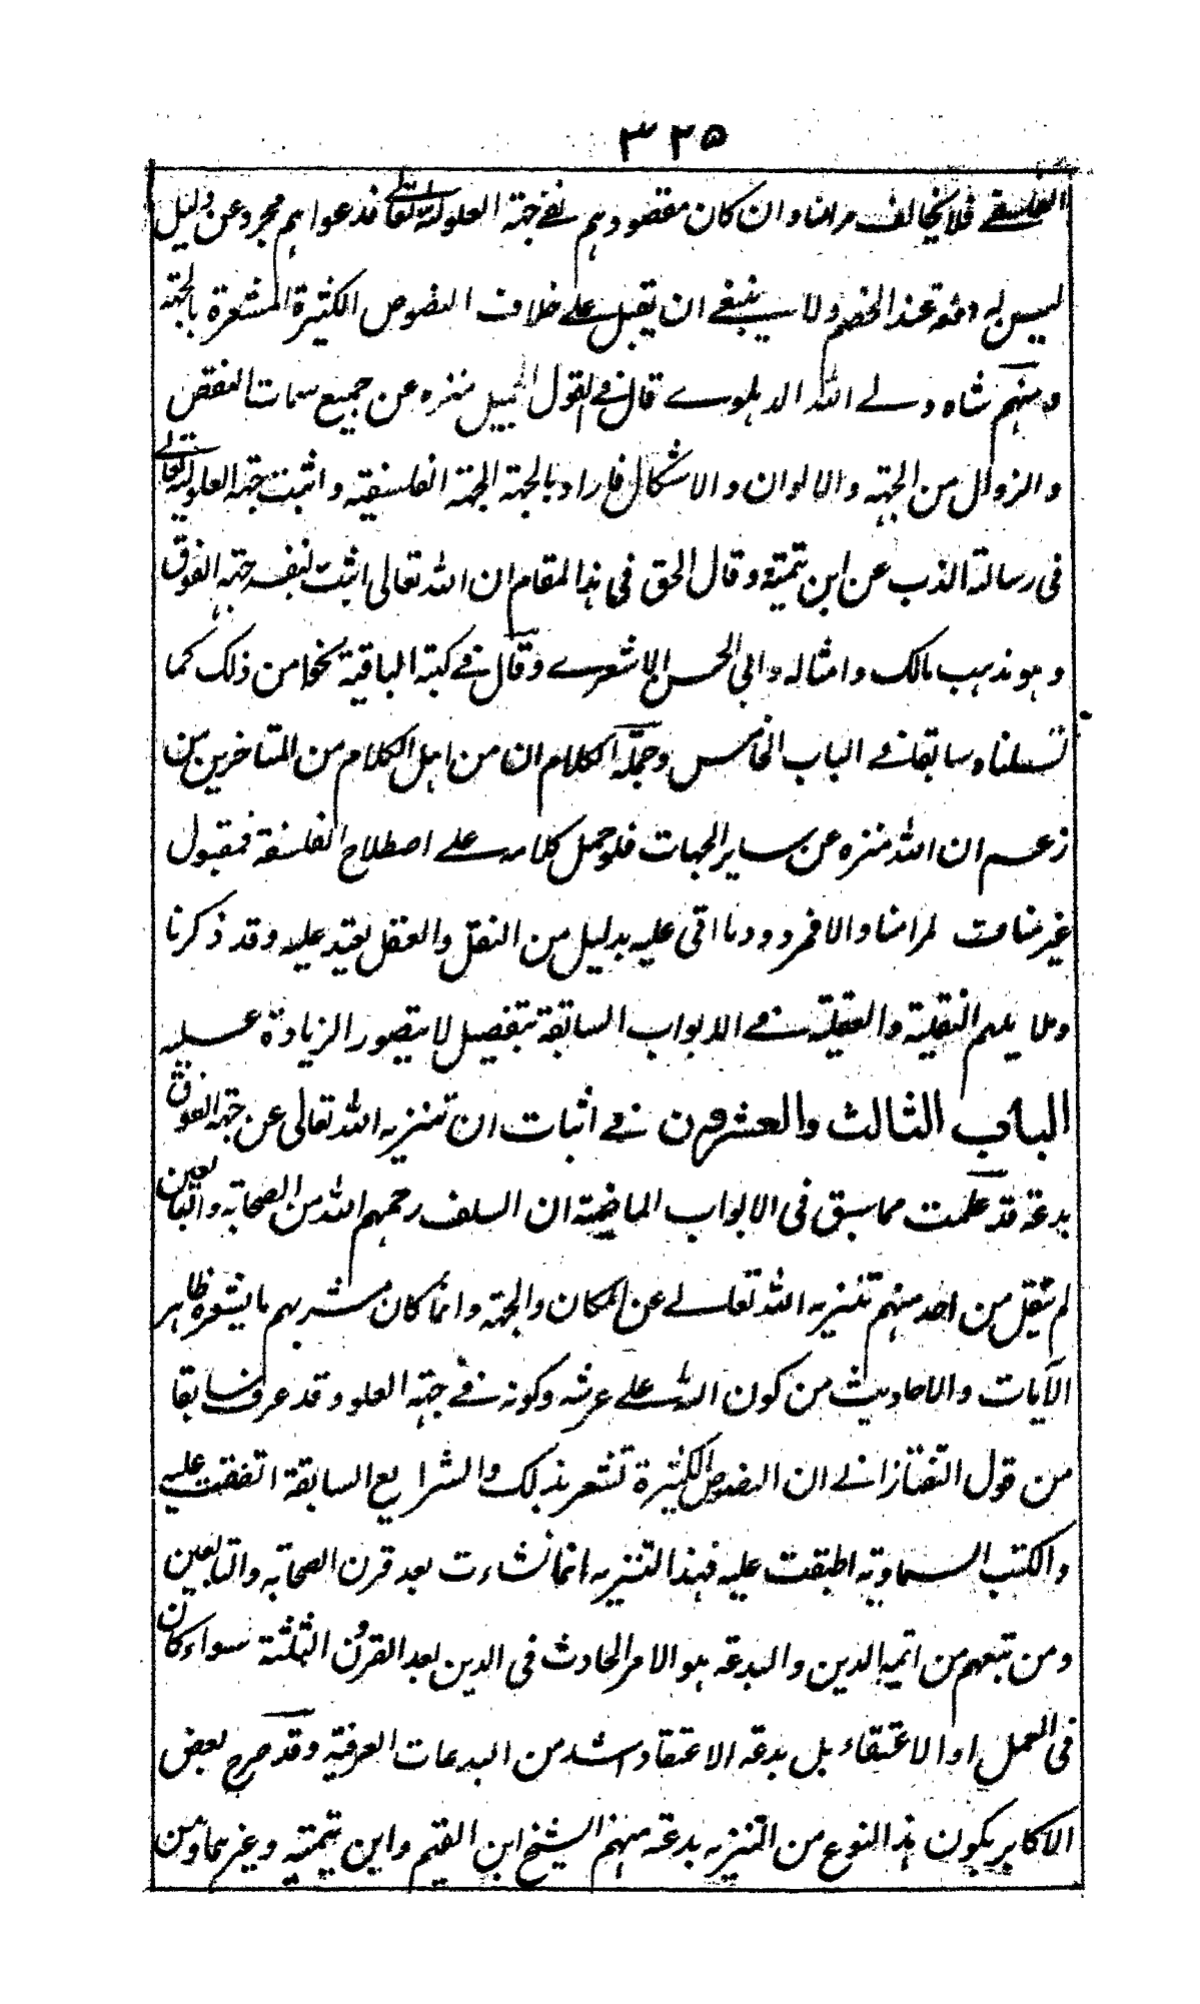 ٣٢٥
الفلسفے فلا يخالف مرامنا وان كان مقصودهم نفے جهة العلو لله تعالے فدعواهم مجرد عن دليل
ليس له وقعة عند الخصم ولا ينبغے ان يقبل علے خلاف النصوص الكثيرة المشعرة بالجهة
ومنهم شاه ولے الله الدهلوے قال فے القول الجميل منزه عن جميع سمات النقص
والزوال من الجهة والالوان والاشكال فاراد بالجهة الجهة الفلسفية واثبت جهة العلو لله تعالے
فى رسالة الذب عن ابن تيمية وقال الحق فى هذا المقام ان الله تعالى اثبت لنفسه جهة الفوق
وهو مذهب مالك وامثاله وابي الحسن الاشعرے وقال فے كتبه الباقية نحوا من ذلك كما
نقلناه سابقا فے الباب الخامس وجملة الكلام ان من اهل الكلام من المتاخرين من
زعم ان الله منزه عن ساير الجهات فلو حمل كلامه علے اصطلاح الفلسفة فمقبول
غير مناف لمرامنا والا فمردود ما اتى عليه بدليل من النقل والعقل يعتد عليه وقد ذكرنا
دلايلهم النقلية والعقلية فے الابواب السابقة بتفصيل لا يتصور الزيادة عليه
الباب الثالث والعشرون فے اثبات ان تنزيه الله تعالى عن جهة الفوق
بدعة قد علمت مما سبق فى الابواب الماضية ان السلف رحمهم الله من الصحابة والتابعين
لم ينقل من احد منهم تنزيه الله تعالے عن المكان والجهة وانما كان مشربهم ما يشعره ظاهر
الآيات والاحاديث من كون الله علے عرشه وكونه فے جهة العلو وقد عرفت سابقا
من قول التفتازانے ان النصوص الكثيرة تشعر بذلك والشرايع السابقة اتفقت عليه
والكتب السماوية اطبقت عليه فهذا التنزيه انما نشاءت بعد قرن الصحابة والتابعين
ومن تبعهم من ائمة الدين والبدعة هو الامر الحادث فى الدين بعد القرون الثلثة سواء كان
فى العمل او الاعتقاد بل بدعة الاعتقاد اشد من البدعات العرفية وقد صرح بعض
الاكابر بكون هذا النوع من التنزيه بدعة منهم الشيخ ابن القيم وابن تيمية وغيرهما ومن